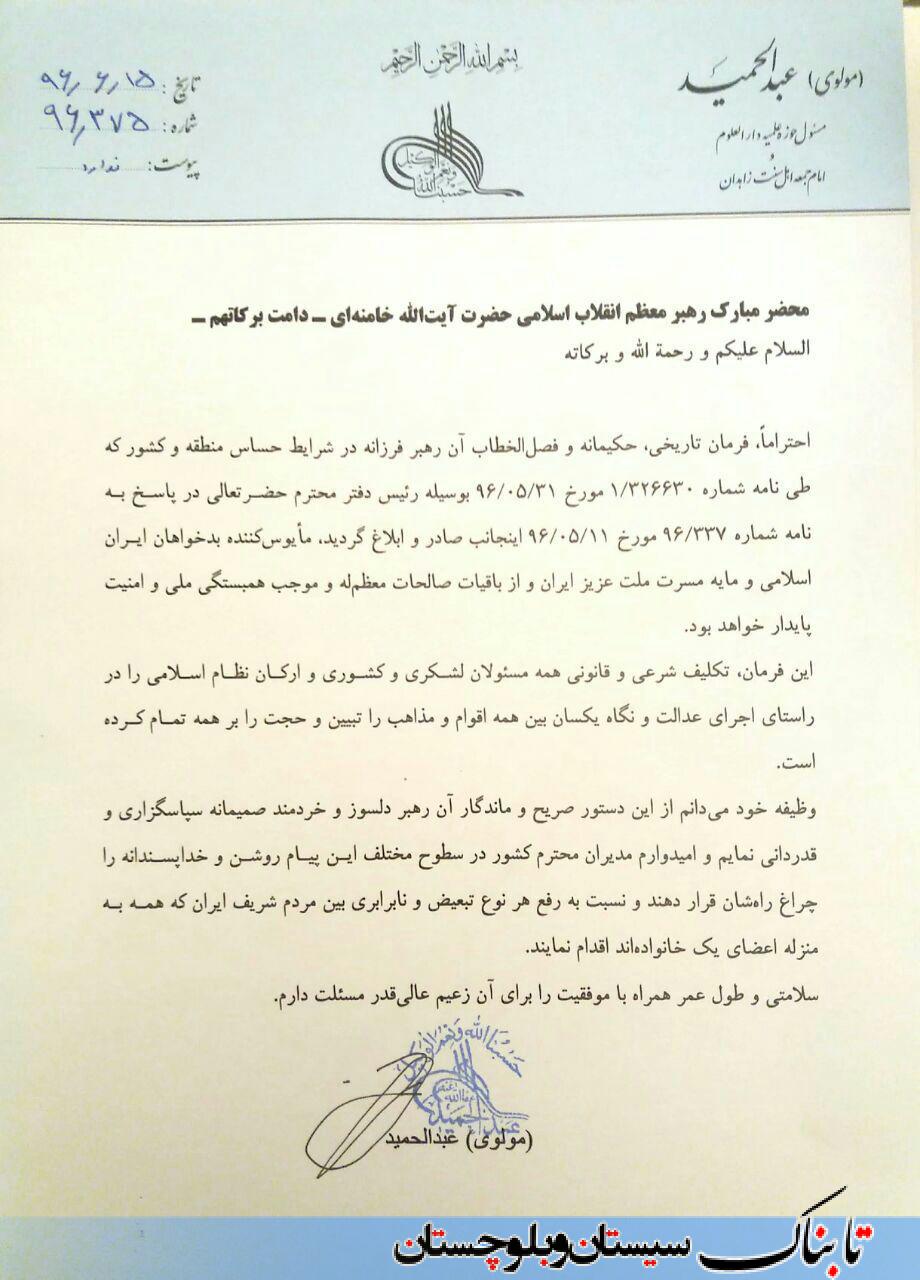 بسم الله الرحمن الرحیم
(مولوی) عبدالحمید
مسئول حوزه علمیه دارالعلوم
و
امام جمعه اهل سنت زاهدان
حسبنا الله ونعم الوکیل
تاریخ: ۹۶٫۶٫۱۵
شماره: ۹۶٫۳۷۵
پیوست: ندارد
محضر مبارک رهبر معظم انقلاب اسلامی حضرت آیت‌الله خامنه‌ای ــ دامت برکاتهم ــ
السلام علیکم و رحمة الله و برکاته
احتراماً، فرمان تاریخی، حکیمانه و فصل‌الخطاب آن رهبر فرزانه در شرایط حساس منطقه و کشور که
طی نامه شماره ۱/۳۲۶۶۳۰ مورخ ۹۶/۰۵/۳۱ بوسیله رئیس دفتر محترم حضرتعالی در پاسخ به
نامه شماره ۹۶/۳۳۷ مورخ ۹۶/۰۵/۱۱ اینجانب صادر و ابلاغ گردید، مأیوس‌کننده بدخواهان ایران
اسلامی و مایه مسرت ملت عزیز ایران و از باقیات صالحات معظم‌له و موجب همبستگی ملی و امنیت
پایدار خواهد بود.
این فرمان، تکلیف شرعی و قانونی همه مسئولان لشکری و کشوری و ارکان نظام اسلامی را در
راستای اجرای عدالت و نگاه یکسان بین همه اقوام و مذاهب را تبیین و حجت را بر همه تمام کرده
است.
وظیفه خود می‌دانم از این دستور صریح و ماندگار آن رهبر دلسوز و خردمند صمیمانه سپاسگزاری و
قدردانی نمایم و امیدوارم مدیران محترم کشور در سطوح مختلف این پیام روشن و خداپسندانه را
چراغ راه‌شان قرار دهند و نسبت به رفع هر نوع تبعیض و نابرابری بین مردم شریف ایران که همه به
منزله اعضای یک خانواده‌اند اقدام نمایند.
سلامتی و طول عمر همراه با موفقیت را برای آن زعیم عالی‌قدر مسئلت دارم.
حسبنا الله ونعم الوکیل
عبدالحمید
(مولوی) عبدالحمید
تابناک سیستان‌وبلوچستان